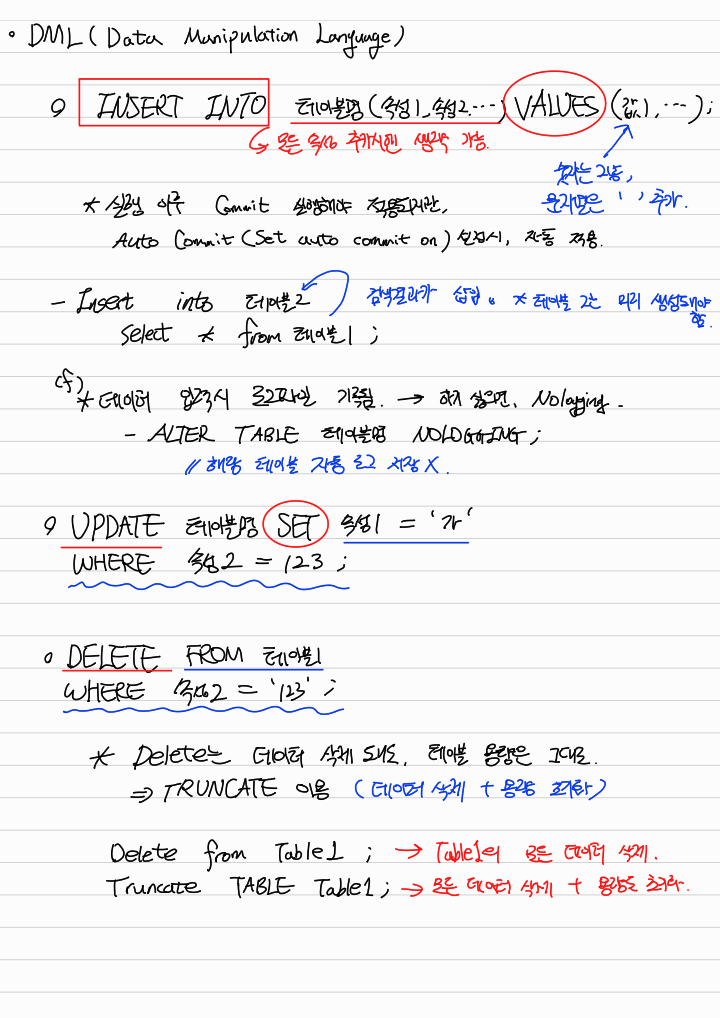 DML (Data Manipulation Language)
INSERT INTO 테이블명 (속성1, 속성2...) VALUES (값1, ...);
모든 속성 추가시엔 생략 가능.
숫자는 그냥,
문자열은 ' ' 추가.
* 실행 이후 Commit 실행해야 적용되지만,
Auto Commit (Set auto commit on) 설정시, 자동 적용.
- Insert into 테이블2
검색결과가 삽입됨 * 테이블 2는 미리 생성돼야
함.
Select * from 테이블1 ;
cf)
* 데이터 입력시 로그파일 기록됨. → 하지 않으면, Nologging.
- ALTER TABLE 테이블명 NOLOGGING ;
// 해당 테이블 자동 로그 저장 X.
UPDATE 테이블명 SET 속성1 = '가'
WHERE 속성2 = 123 ;
DELETE FROM 테이블1
WHERE 속성2 = '123' ;
* Delete는 데이터 삭제 돼도, 테이블 용량은 그대로.
⇒ TRUNCATE 이용 (데이터 삭제 + 용량 초기화)
Delete from Table1 ; → Table1의 모든 데이터 삭제.
Truncate TABLE Table1 ; → 모든 데이터 삭제 + 용량도 초기화.